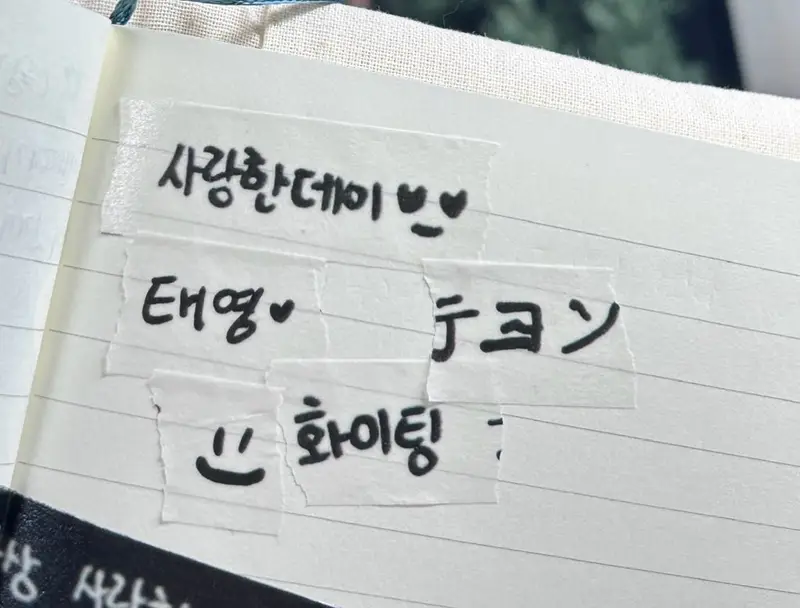 사랑한데이
태영♥ テヨン
화이팅
상 사랑